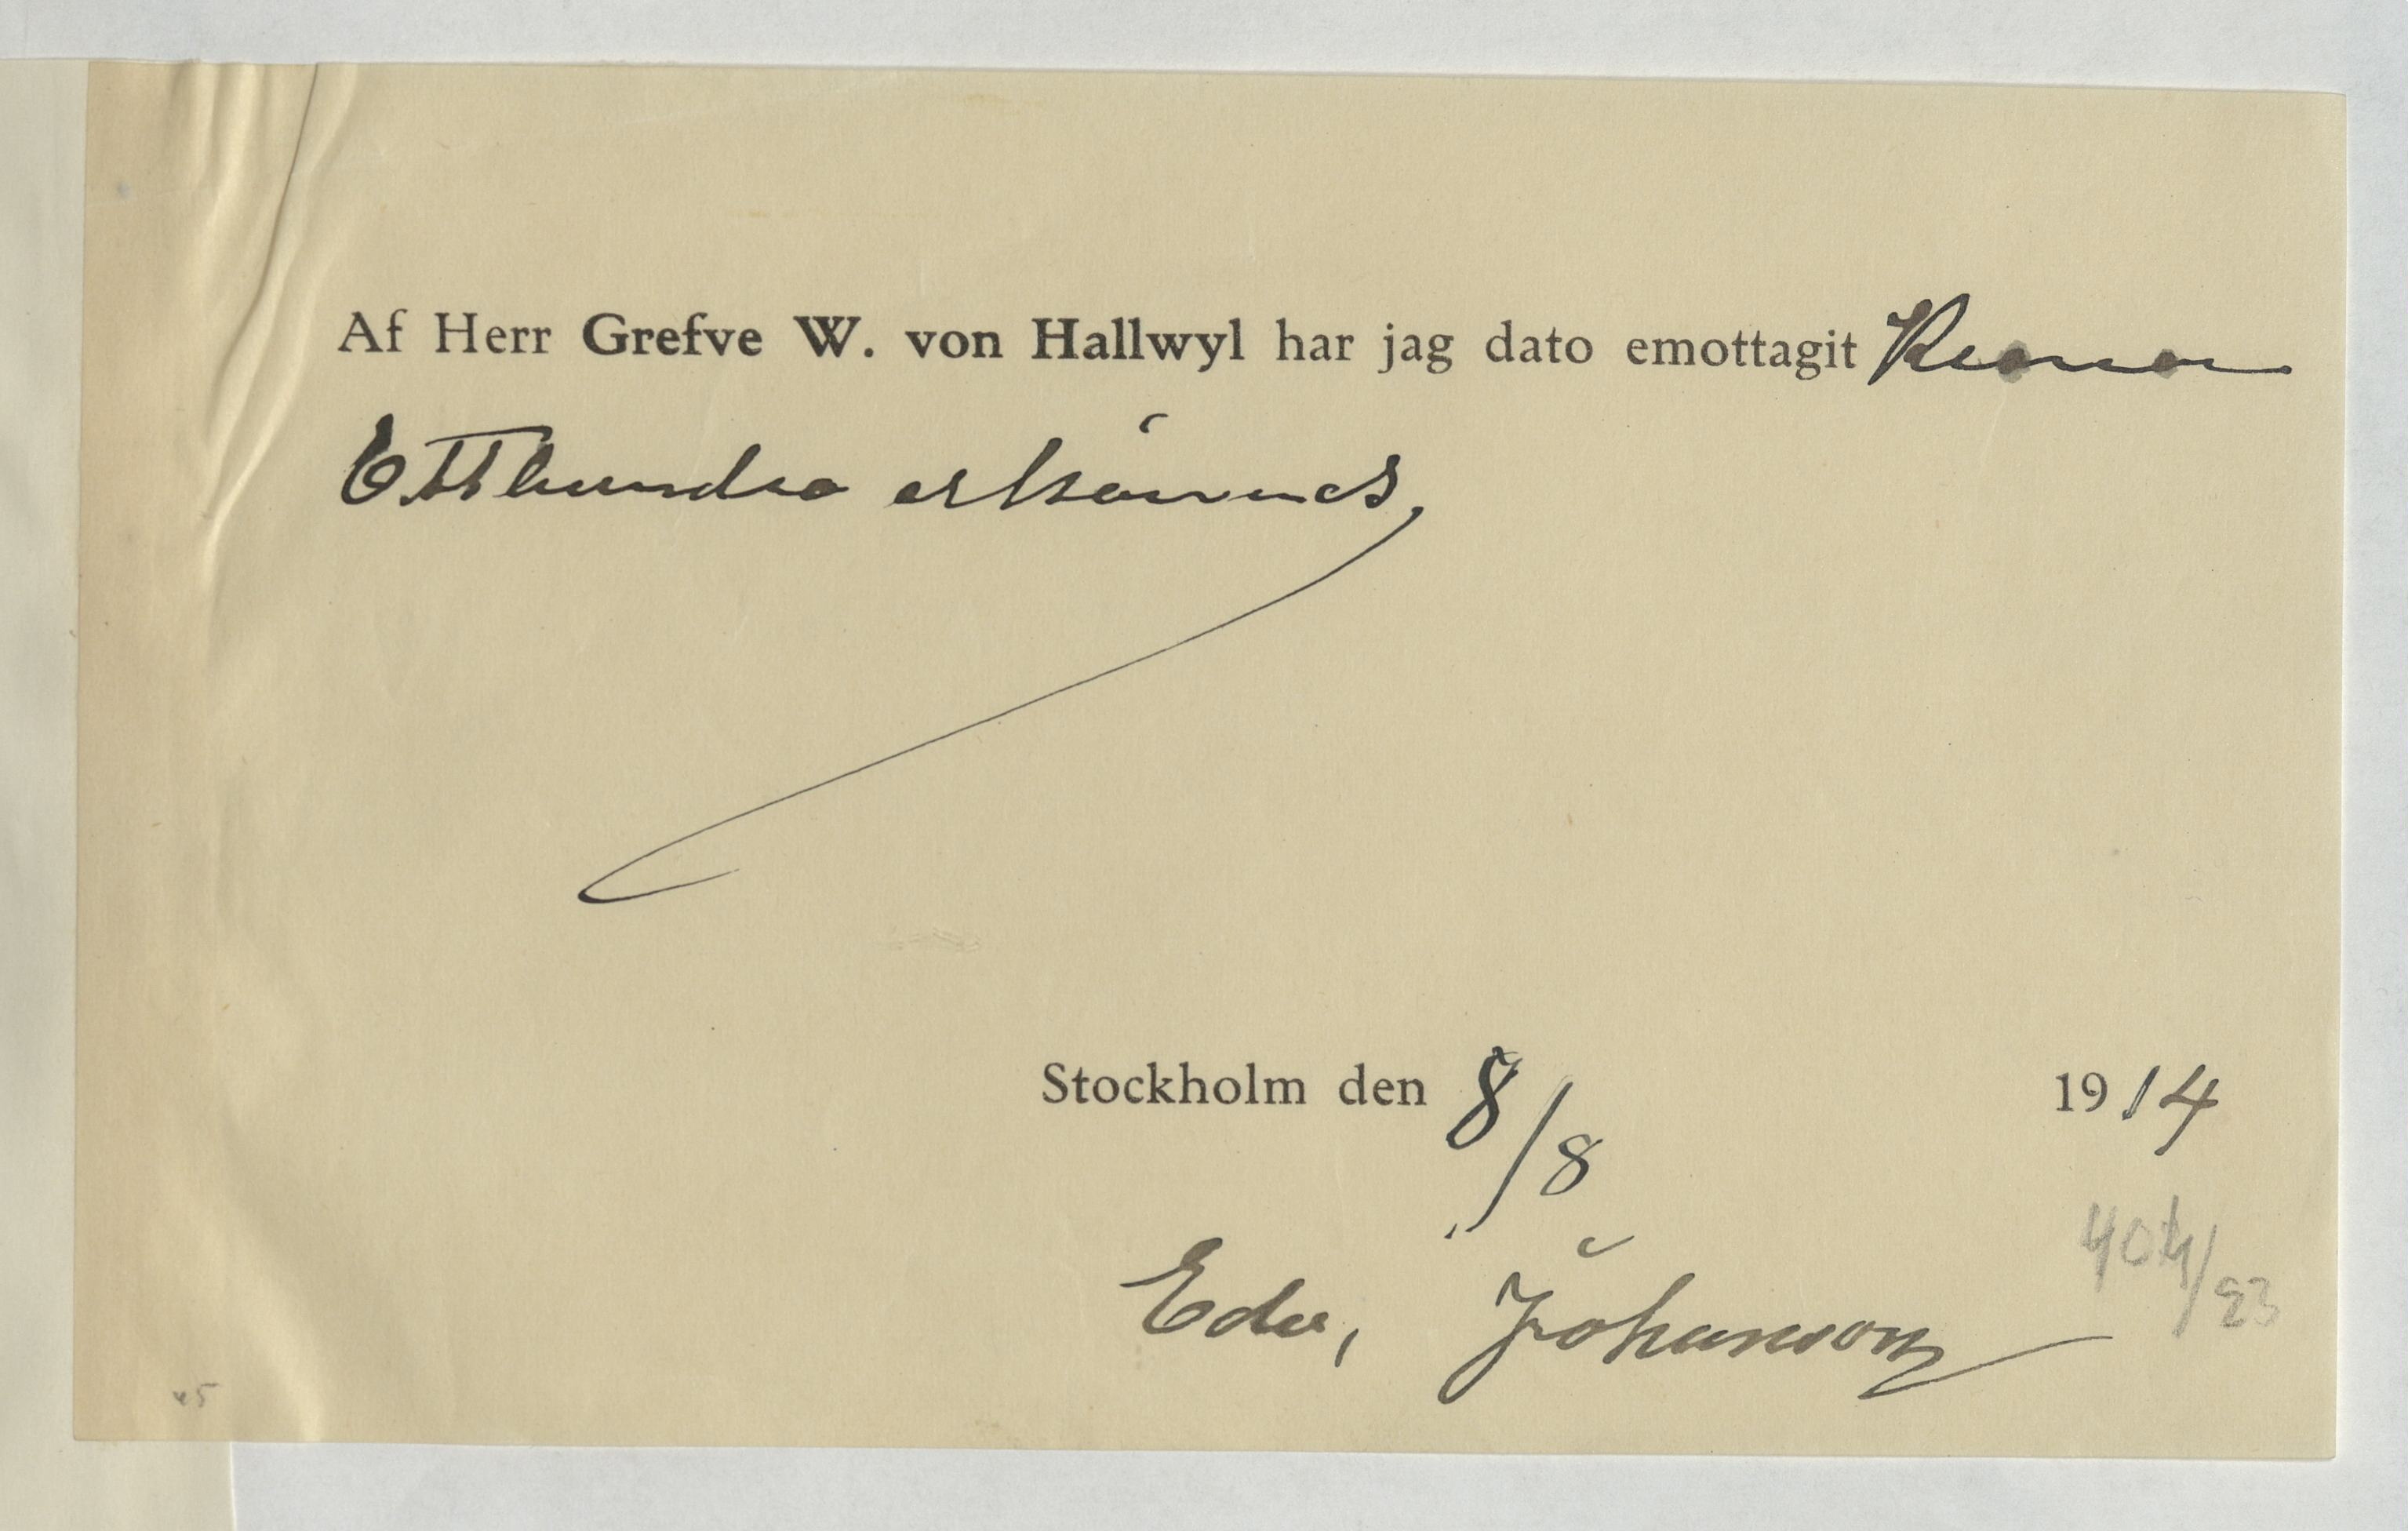 Af Herr Grefve W. von Hallwyl har jag dato emottagit Kronor
Etthundra erkännes,
Stockholm den 8/8 1914
Edv, Johanson
45